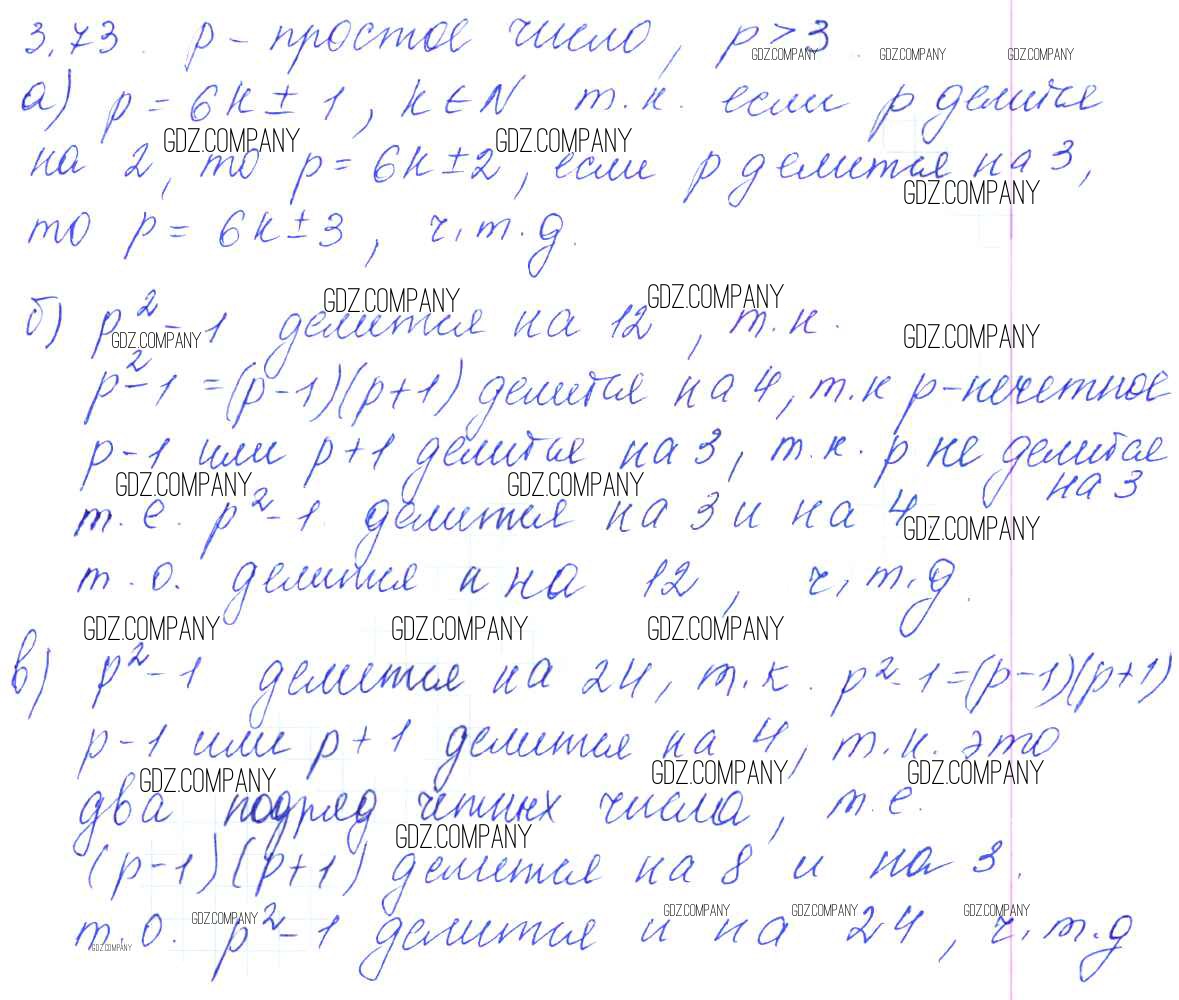 3.73. p – простое число, p > 3.
а) p = 6k ± 1, k ∈ N т.к. если p делится
на 2, то p = 6k ± 2, если p делится на 3,
то p = 6k ± 3, ч.т.д.
б) p² – 1 делится на 12, т.к.
p² – 1 = (p – 1)(p + 1) делится на 4, т.к p – нечетное
p – 1 или p + 1 делится на 3, т.к. p не делится
на 3
т.е. p² – 1 делится на 3 и на 4
т.о. делится и на 12, ч.т.д.
в) p² – 1 делится на 24, т.к. p² – 1 = (p – 1)(p + 1)
p – 1 или p + 1 делится на 4, т.к. это
два подряд четных числа, т.е.
(p – 1)(p + 1) делится на 8 и на 3.
т.о. p² – 1 делится и на 24, ч.т.д
GDZ.COMPANY GDZ.COMPANY GDZ.COMPANY
GDZ.COMPANY GDZ.COMPANY
GDZ.COMPANY
GDZ.COMPANY GDZ.COMPANY
GDZ.COMPANY GDZ.COMPANY
GDZ.COMPANY GDZ.COMPANY
GDZ.COMPANY
GDZ.COMPANY GDZ.COMPANY GDZ.COMPANY
GDZ.COMPANY GDZ.COMPANY GDZ.COMPANY
GDZ.COMPANY
GDZ.COMPANY GDZ.COMPANY GDZ.COMPANY GDZ.COMPANY
GDZ.COMPANY